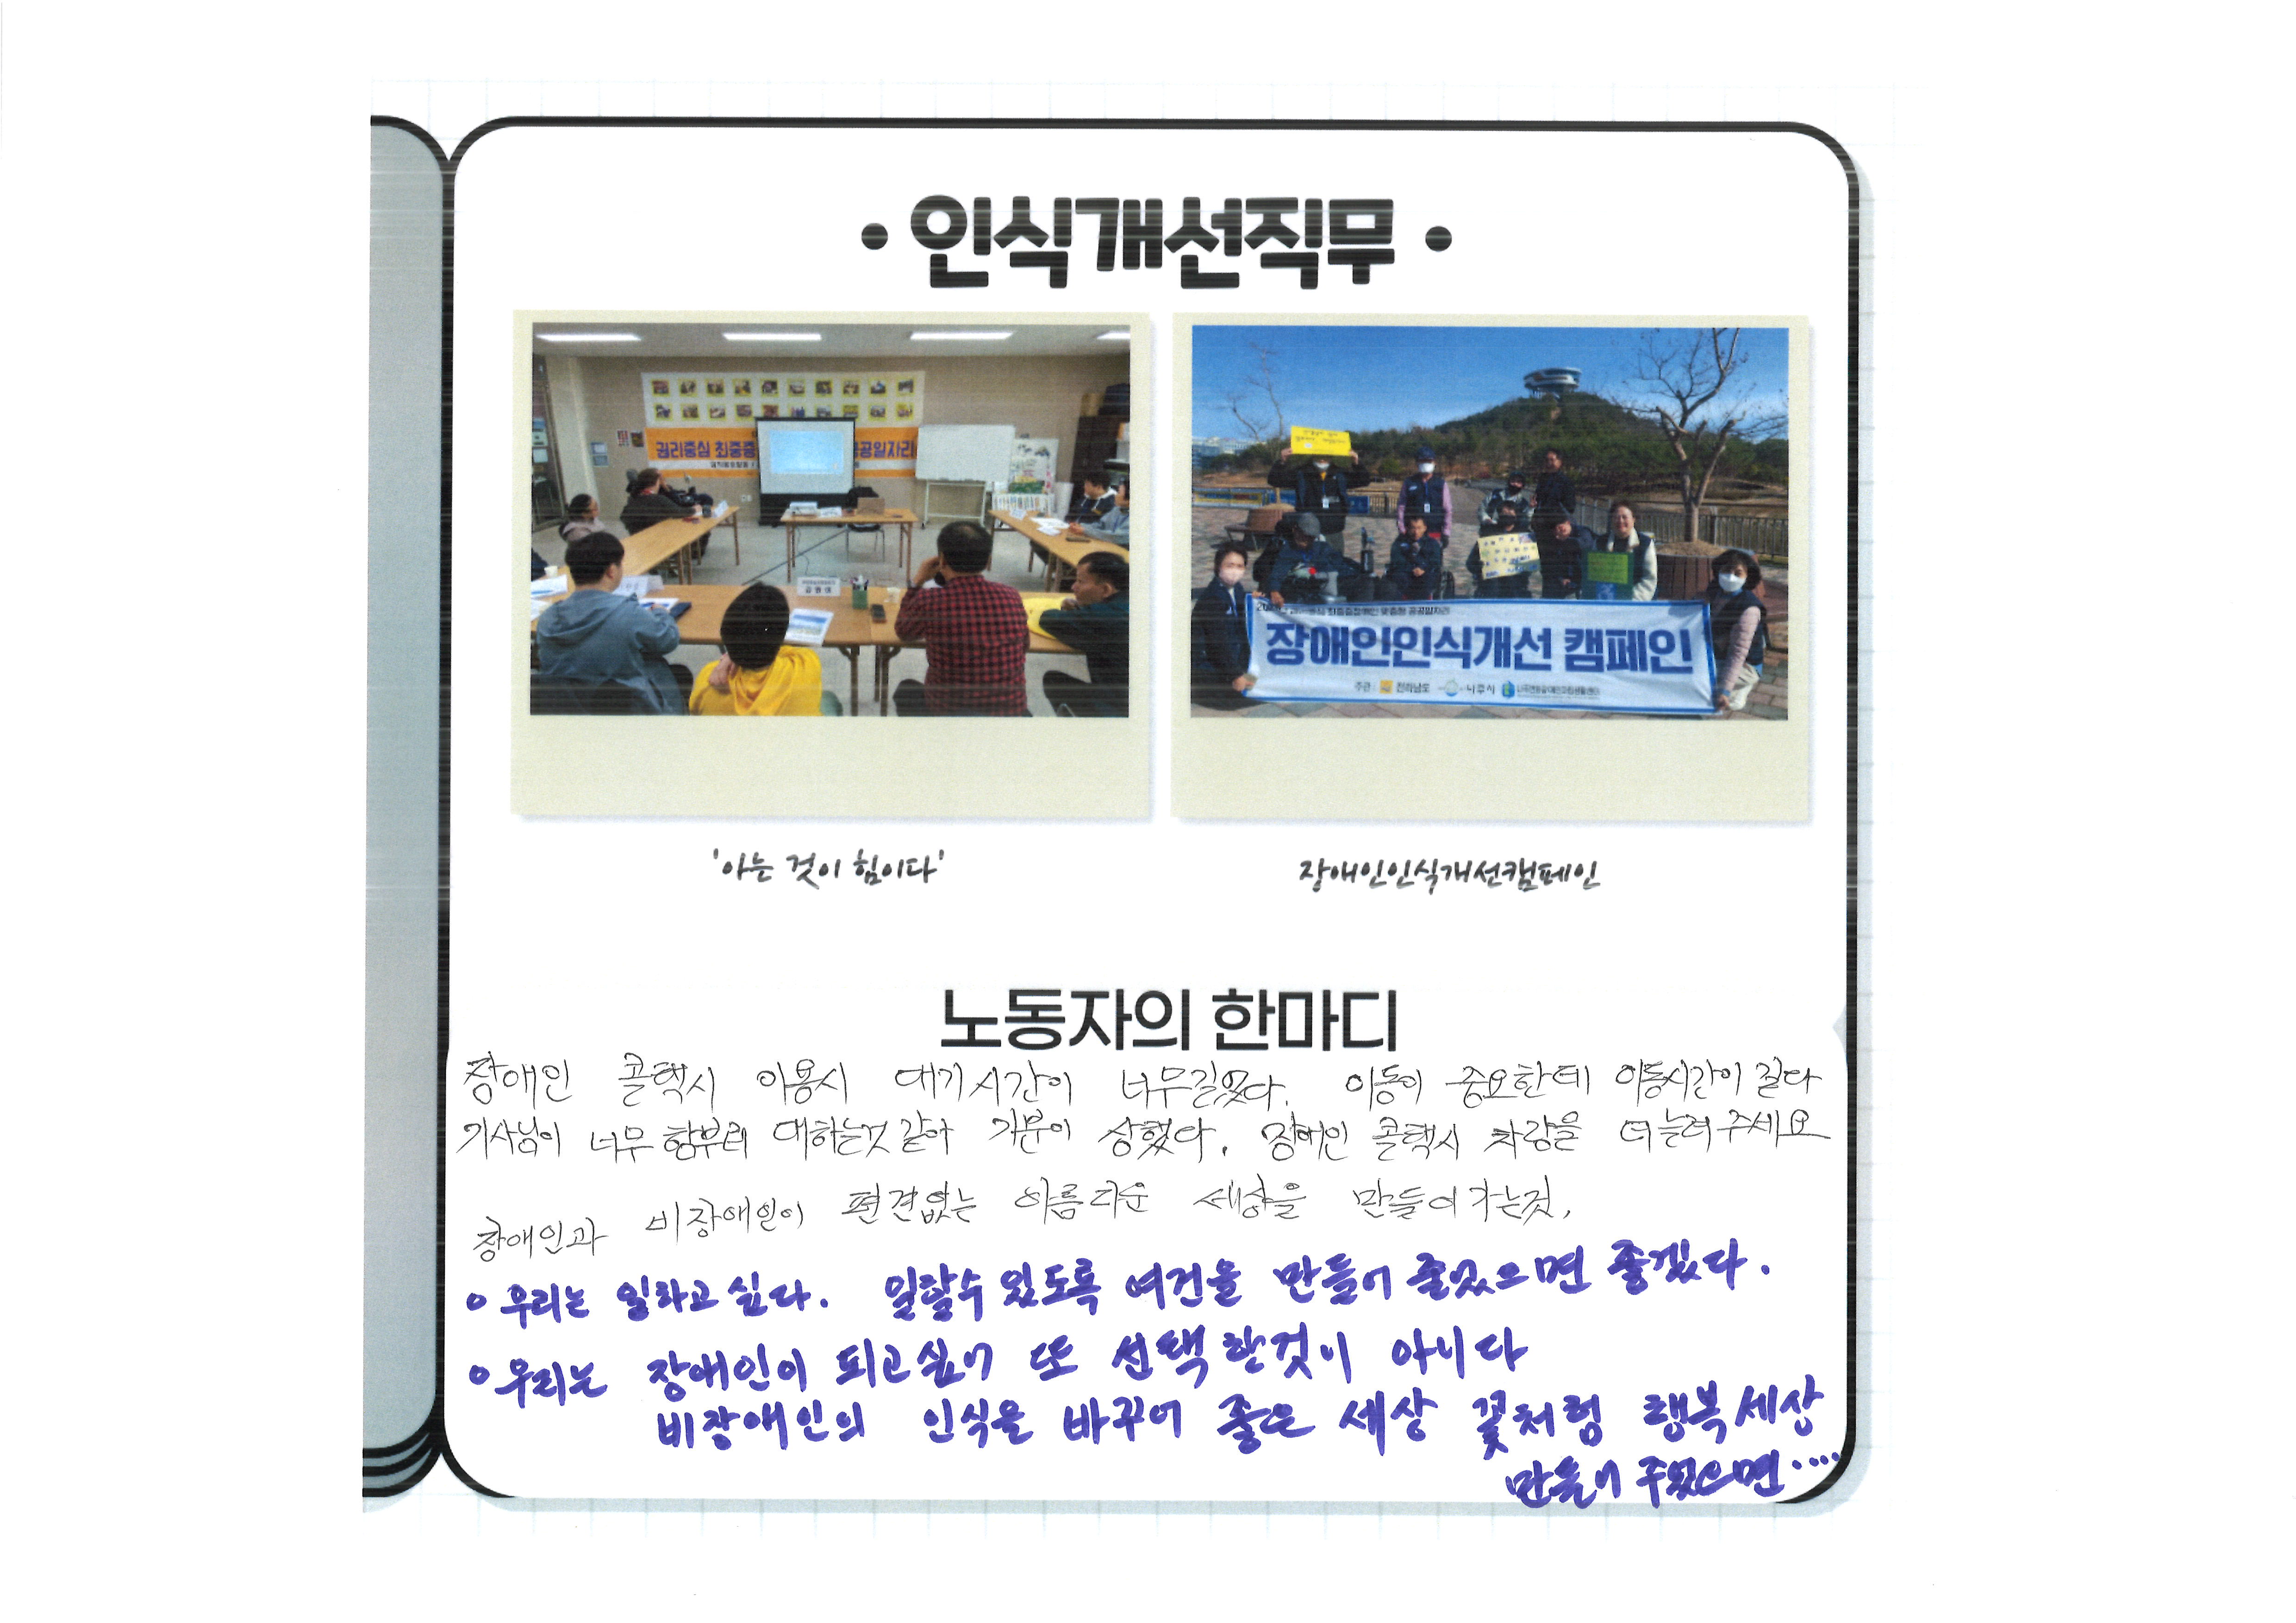 • 인식개선직무 •
권리중심 최중증
공공일자리
장애인인식개선 캠페인
주관 전라남도 나주시
'아는 것이 힘이다'
장애인인식개선캠페인
노동자의 한마디
장애인 콜택시 이용시 대기시간이 너무길었다. 이동이 중요한데 이동시간이 길다
기사님이 너무 함부러 대하는것 같아 기분이 상했다. 장애인 콜택시 차량을 더늘려주세요
장애인과 비장애인이 편견없는 아름다운 세상을 만들어가는것,
o 우리는 일하고 싶다. 일할수 있도록 여건을 만들어 줄있으면 좋겠다.
o 우리는 장애인이 되고싶어 또 선택한것이 아니다
비장애인의 인식을 바꾸어 좋은 세상 꽃처럼 행복세상
만들어 주었으면 ....